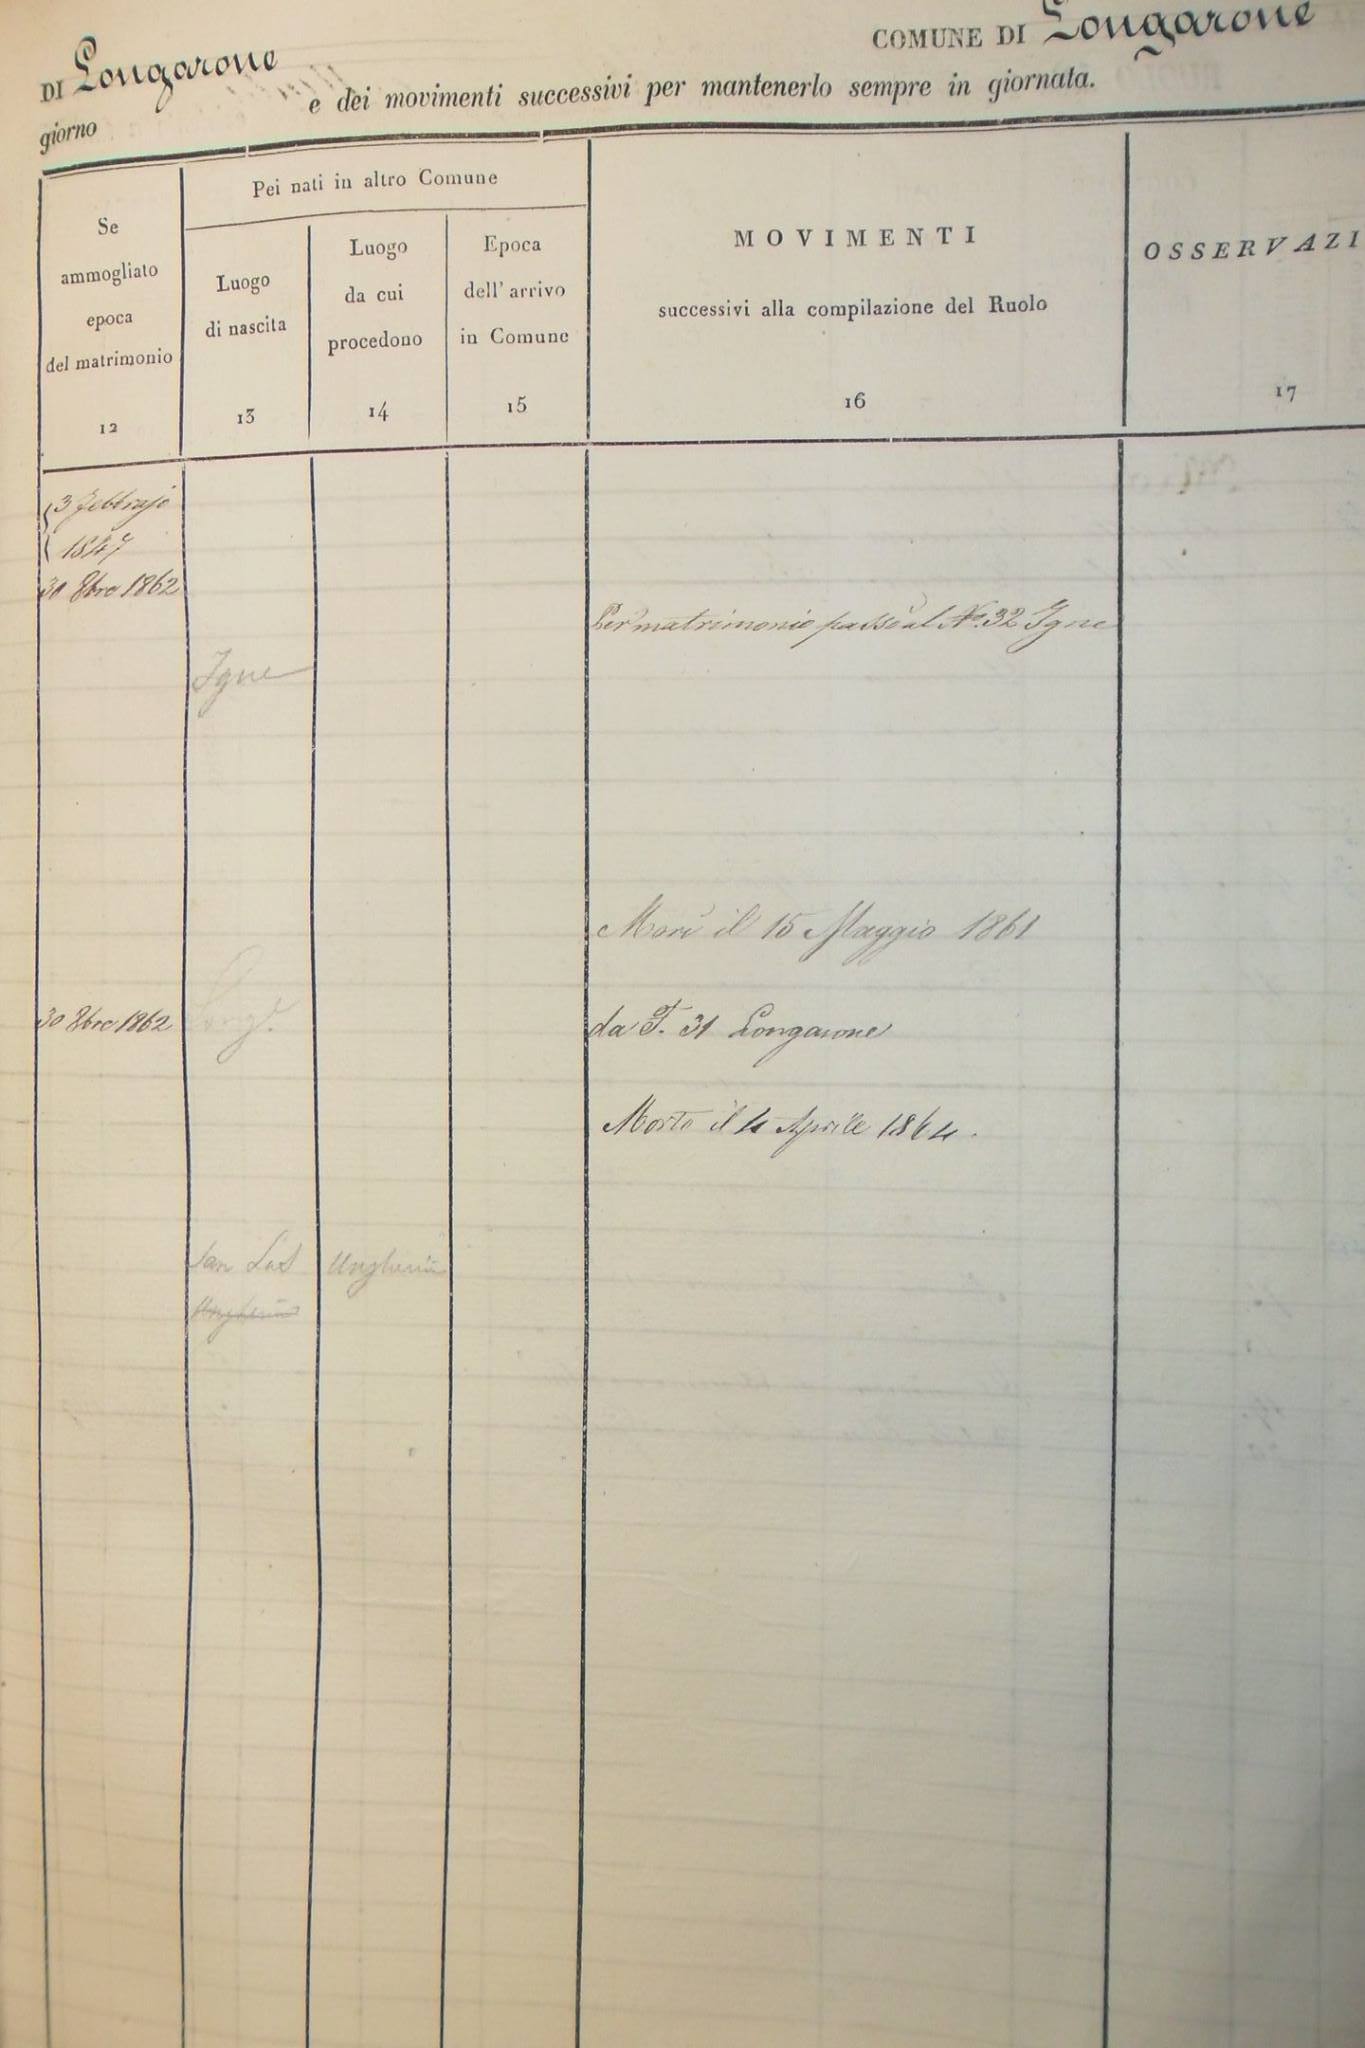 DI Longarone
COMUNE DI Longarone
e dei movimenti successivi per mantenerlo sempre in giornata.
giorno
Se
ammogliato
epoca
del matrimonio
12
Pei nati in altro Comune
Luogo
di nascita
13
Luogo
da cui
procedono
14
Epoca
dell' arrivo
in Comune
15
MOVIMENTI
successivi alla compilazione del Ruolo
16
OSSERVAZI
17
3 Febbrajo
1847
30 8bre 1862
Per matrimonio passò al No. 32 Igne
Igne
Morì il 15 Maggio 1861
30 8bre 1862
Longe.
da F. 31 Longarone
Morto il 4 Aprile 1864.
San
Ungheria
Ungheria